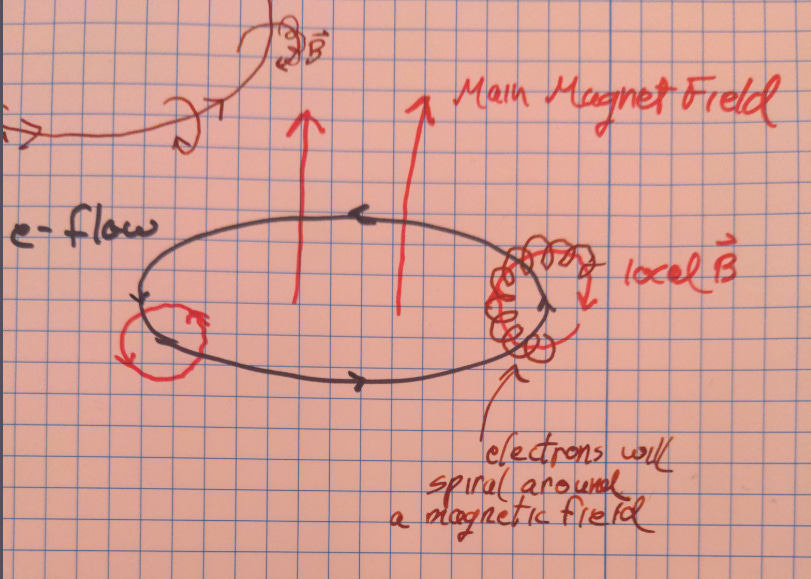 B
Main Magnet Field
e- flow
local B
electrons will
spiral around
a magnetic field